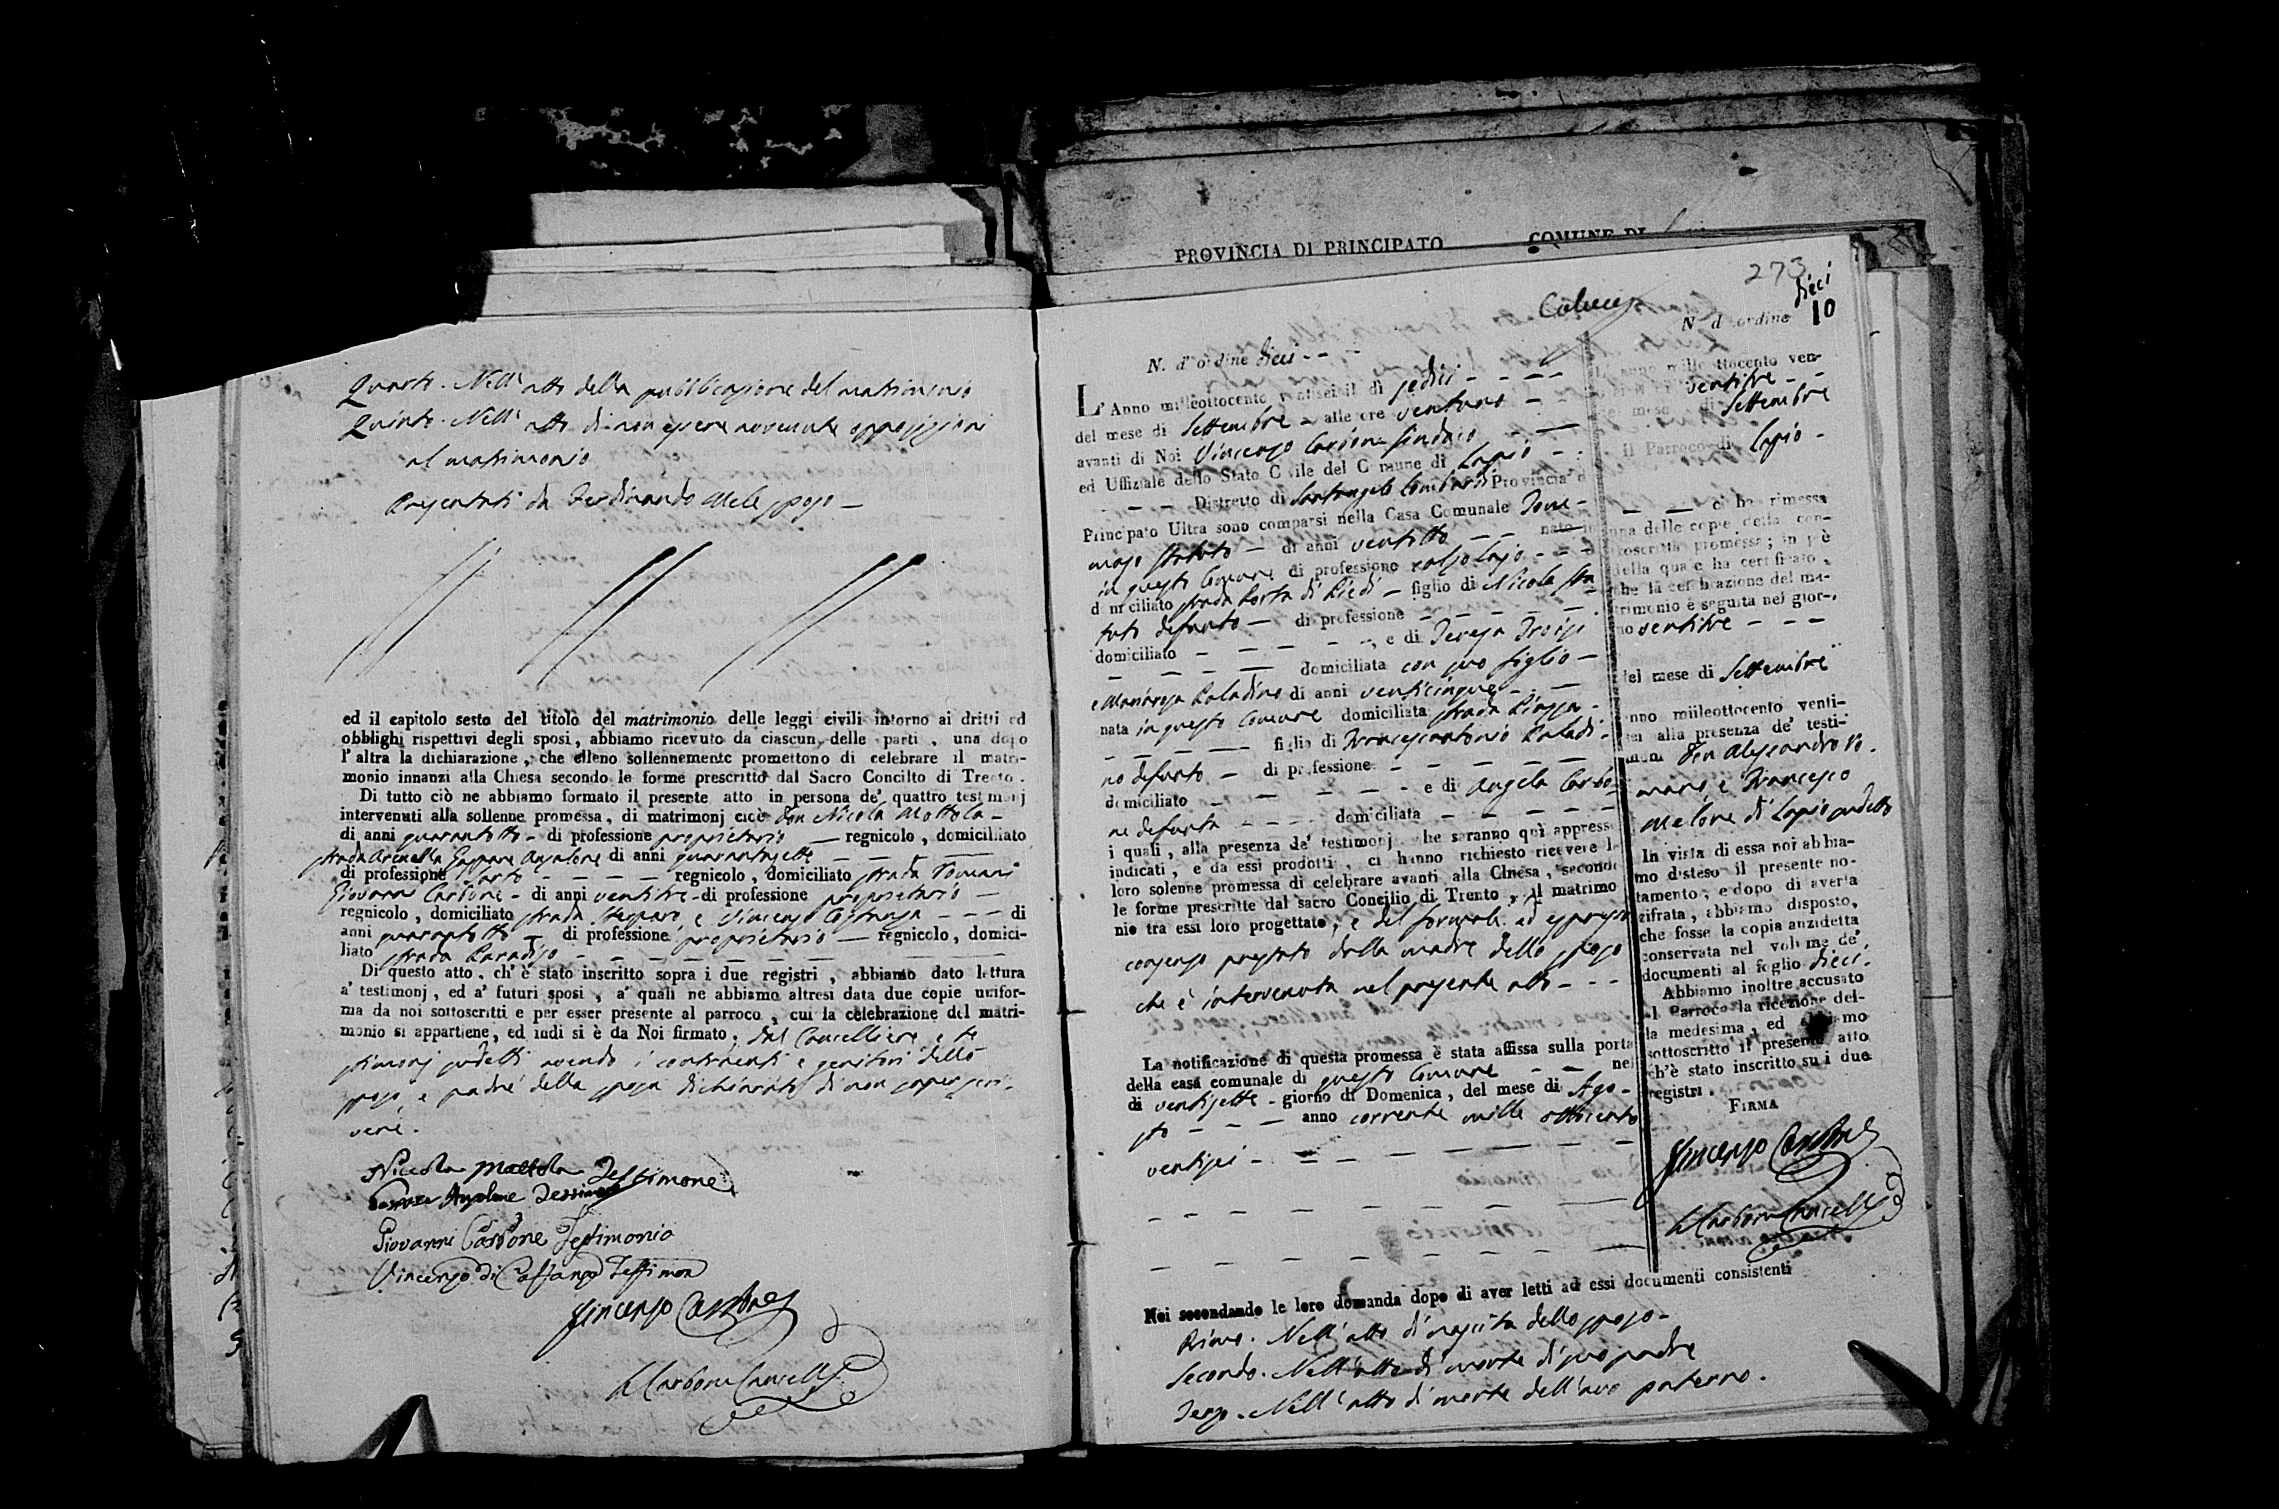 Quarto. Nell'atto della pubblicazione del matrimonio
Quinto. Nell'atto di non essere avvenute opposizioni
al matrimonio
Presentati da Ferdinando Mele sposo —
ed il capitolo sesto del titolo del matrimonio delle leggi civili intorno ai dritti ed
obblighi rispettivi degli sposi, abbiamo ricevuto da ciascun delle parti, una dopo
l'altra la dichiarazione, che elleno sollennemente promettono di celebrare il matri-
monio innanzi alla Chiesa secondo le forme prescritto dal Sacro Concilto di Trento.
Di tutto ciò ne abbiamo formato il presente atto in persona de' quattro testimonj
intervenuti alla sollenne promessa, di matrimonj cioè don Nicola Mottola —
di anni quarantotto - di professione proprietario — regnicolo, domiciliato
strada Arenella Gaspare Anzalone di anni quarantasette — — —
di professione sarto - - - - regnicolo, domiciliato strada Tomani
Giovanni Carbone - di anni ventitre - di professione proprietario —
regnicolo, domiciliato strada e Vincenzo - - - di
anni quarantotto — di professione proprietario — regnicolo, domici-
liato strada Paradiso - - - - - -
Di questo atto, ch'è stato inscritto sopra i due registri, abbiamo dato lettura
a' testimonj, ed a' futuri sposi, a' quali ne abbiamo altresì data due copie unifor-
ma da noi sottoscritti e per esser presente al parroco, cui la celebrazione del matri-
monio si appartiene, ed indi si è da Noi firmato, dal Cancelliere e te
stimonj sudetti avendo i contraenti e genitori dello
sposo, e padre della sposa dichiarato di non saper scri-
vere.
Niccola Mottola Testimone
Gaspare Anzalone Testimone
Giovanni Carbone Testimonio
Vincenzo di Testimon
Vincenzo Carbone
Carbone Cancell
PROVINCIA DI PRINCIPATO COMUNE DI
273
dieci
N. d'ordine 10
N. d'ordine dieci - - -
L'Anno milleottocento ventisei il dì sedici - - - -
del mese di Settembre - alle ore ventuno - -
avanti di Noi Vincenzo Carbone Sindaco - —
ed Uffiziale dello Stato Civile del Comune di Lapio - -
- — - Distretto di Santangelo Lombardi Provincia di
Principato Ultra sono comparsi nella Casa Comunale Tom-
maso Statuto — di anni ventotto - - nato in
in questo Comune di professione calzolajo - - -
domiciliato strada Porta di Piedi - figlio di Nicola Sta
tuto defunto — di professione - - - - -
domiciliato - - - - -, e di Teresa Troisi
- - - — domiciliata con suo figlio —
e Mariarosa Paladino di anni venticinque - —
nata in questo Comune domiciliata strada Piazza -
- - - — figlia di Francescantonio Paladi-
no defunto — di professione - - - - -
domiciliato - - - - - e di Angela Carbo-
ne defunta - - - - domiciliata - - - -
i quali, alla presenza de' testimonj che saranno quì appresso
indicati, e da essi prodotti, ci hanno richiesto ricevere la
loro solenne promessa di celebrare avanti alla Chiesa, secondo
le forme prescritte dal sacro Concilio di Trento, il matrimo
nio tra essi loro progettato, e del formale ed espresso
consenso prestato dalla madre dello sposo
che è intervenuta nel presente atto - - -
La notificazione di questa promessa è stata affissa sulla porta
della casa comunale di questo Comune - - nel
dì ventisette - giorno di Domenica, del mese di Ago-
sto - - - anno corrente mille ottocento
ventisei - - - - - - - -
Noi secondando le loro domanda dopo di aver letti ad essi documenti consistenti
Primo. Nell'atto di nascita dello sposo -
Secondo. Nell'atto di morte di suo padre
Terzo. Nell'atto di morte dell'avo paterno.
L'anno milleottocento ven-
ventitre - -
del mese di Settembre
il Parroco di Lapio -
— — ci ha rimessa
una delle copie della con-
troscritta promessa; in piè
della quale ha certificato,
che la celebrazione del ma-
trimonio è seguita nel gior-
no ventitre - - -
del mese di Settembre
anno milleottocento venti-
sei alla presenza de' testi-
monj Don Alessandro Ro-
mano, e Francesco
Melone di Lapio sudetto
In vista di essa noi abbia-
mo disteso il presente no-
tamento; e dopo di averla
cifrata, abbiamo disposto,
che fosse la copia anzidetta
conservata nel volume de'
documenti al foglio dieci.
Abbiamo inoltre accusato
al Parroco la ricezione del-
la medesima, ed abbiamo
sottoscritto il presente atto
ch'è stato inscritto su i due
registri.
FIRMA
Vincenzo Carbone
Carbone Cancell